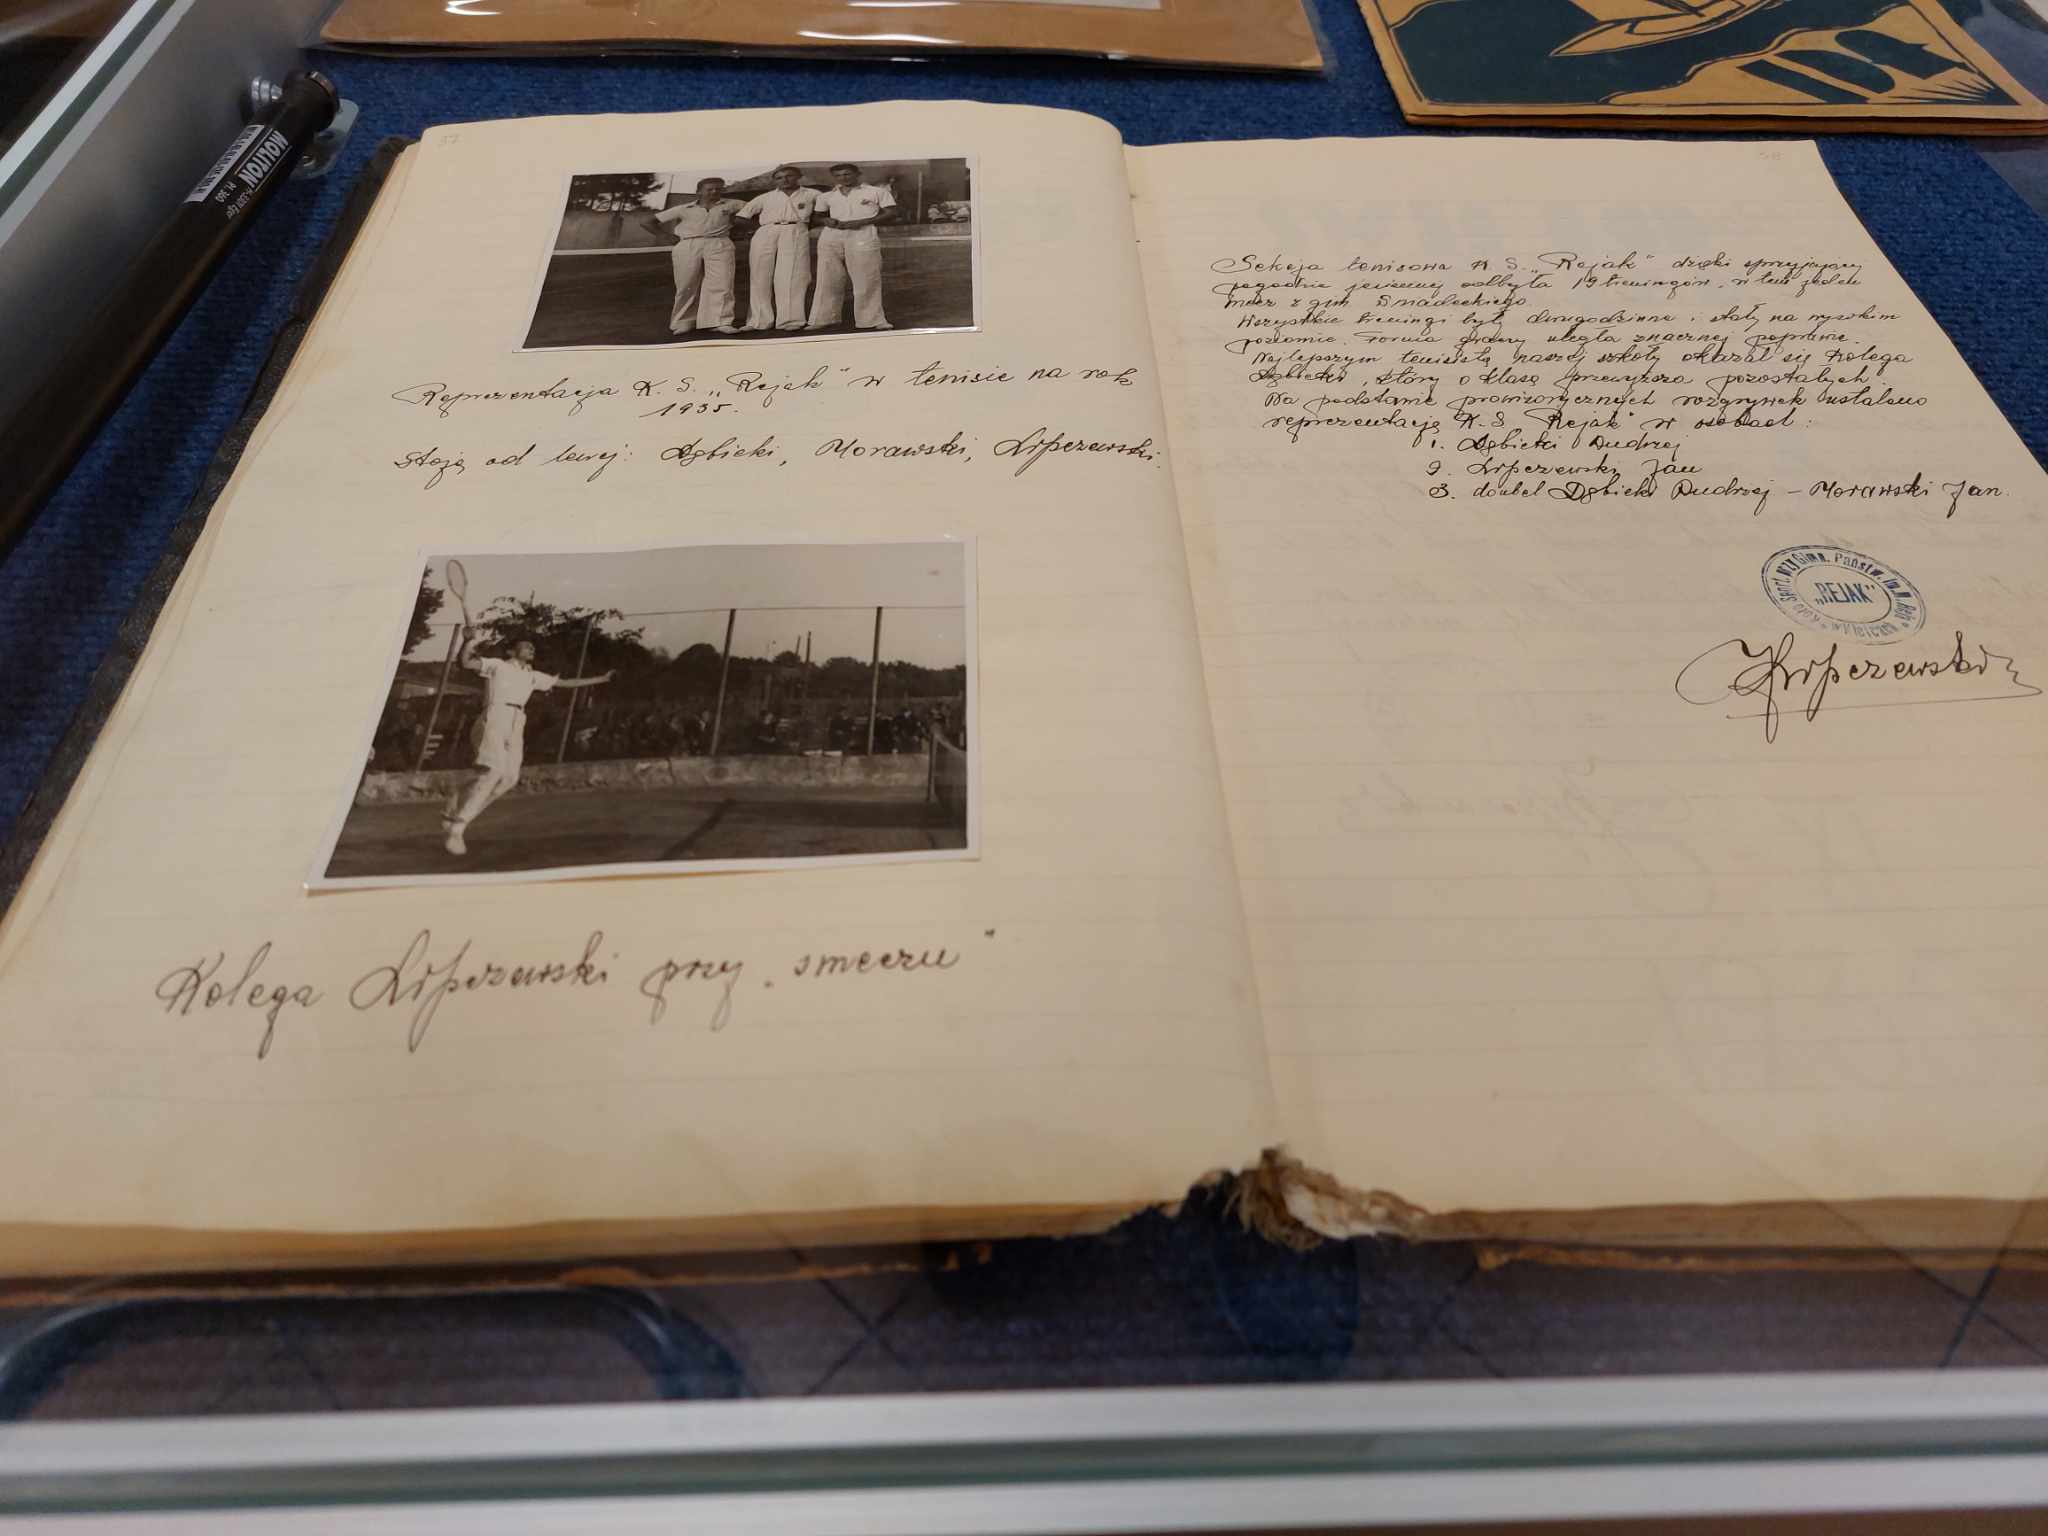 37
Reprezentacja K. S. „Rejak" w tenisie na rok
1935.
Stoją od lewej: Dębicki, Morawski, Lipczewski.
Kolega Lipczewski przy „smeczu"
38
Sekcja tenisowa K. S. „Rejak" dzięki sprzyjającej
pogodzie jesiennej odbyła 19 treningów, w tem jeden
mecz z gim. Śniadeckiego.
Wszystkie treningi były dwugodzinne i stały na wysokim
poziomie. Forma graczy uległa znacznej poprawie.
Najlepszym tenisistą naszej szkoły okazał się kolega
Dębicki, który o klasę przewyższa pozostałych.
Na podstawie prowizorycznych rozgrywek ustalono
reprezentację K. S. „Rejak" w osobach:
1. Dębicki Andrzej
2. Lipczewski Jan
3. doubel Dębicki Andrzej – Morawski Jan.
Koło Sport. przy Gimn. Państw. im. M. Reja
„REJAK"
w Kielcach
JLipczewski
MOLITON